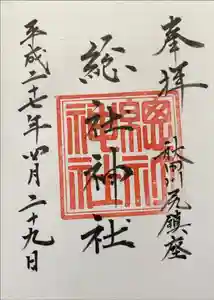 奉拝
秋田川尻鎮座
総社神社
平成二十七年四月二十九日